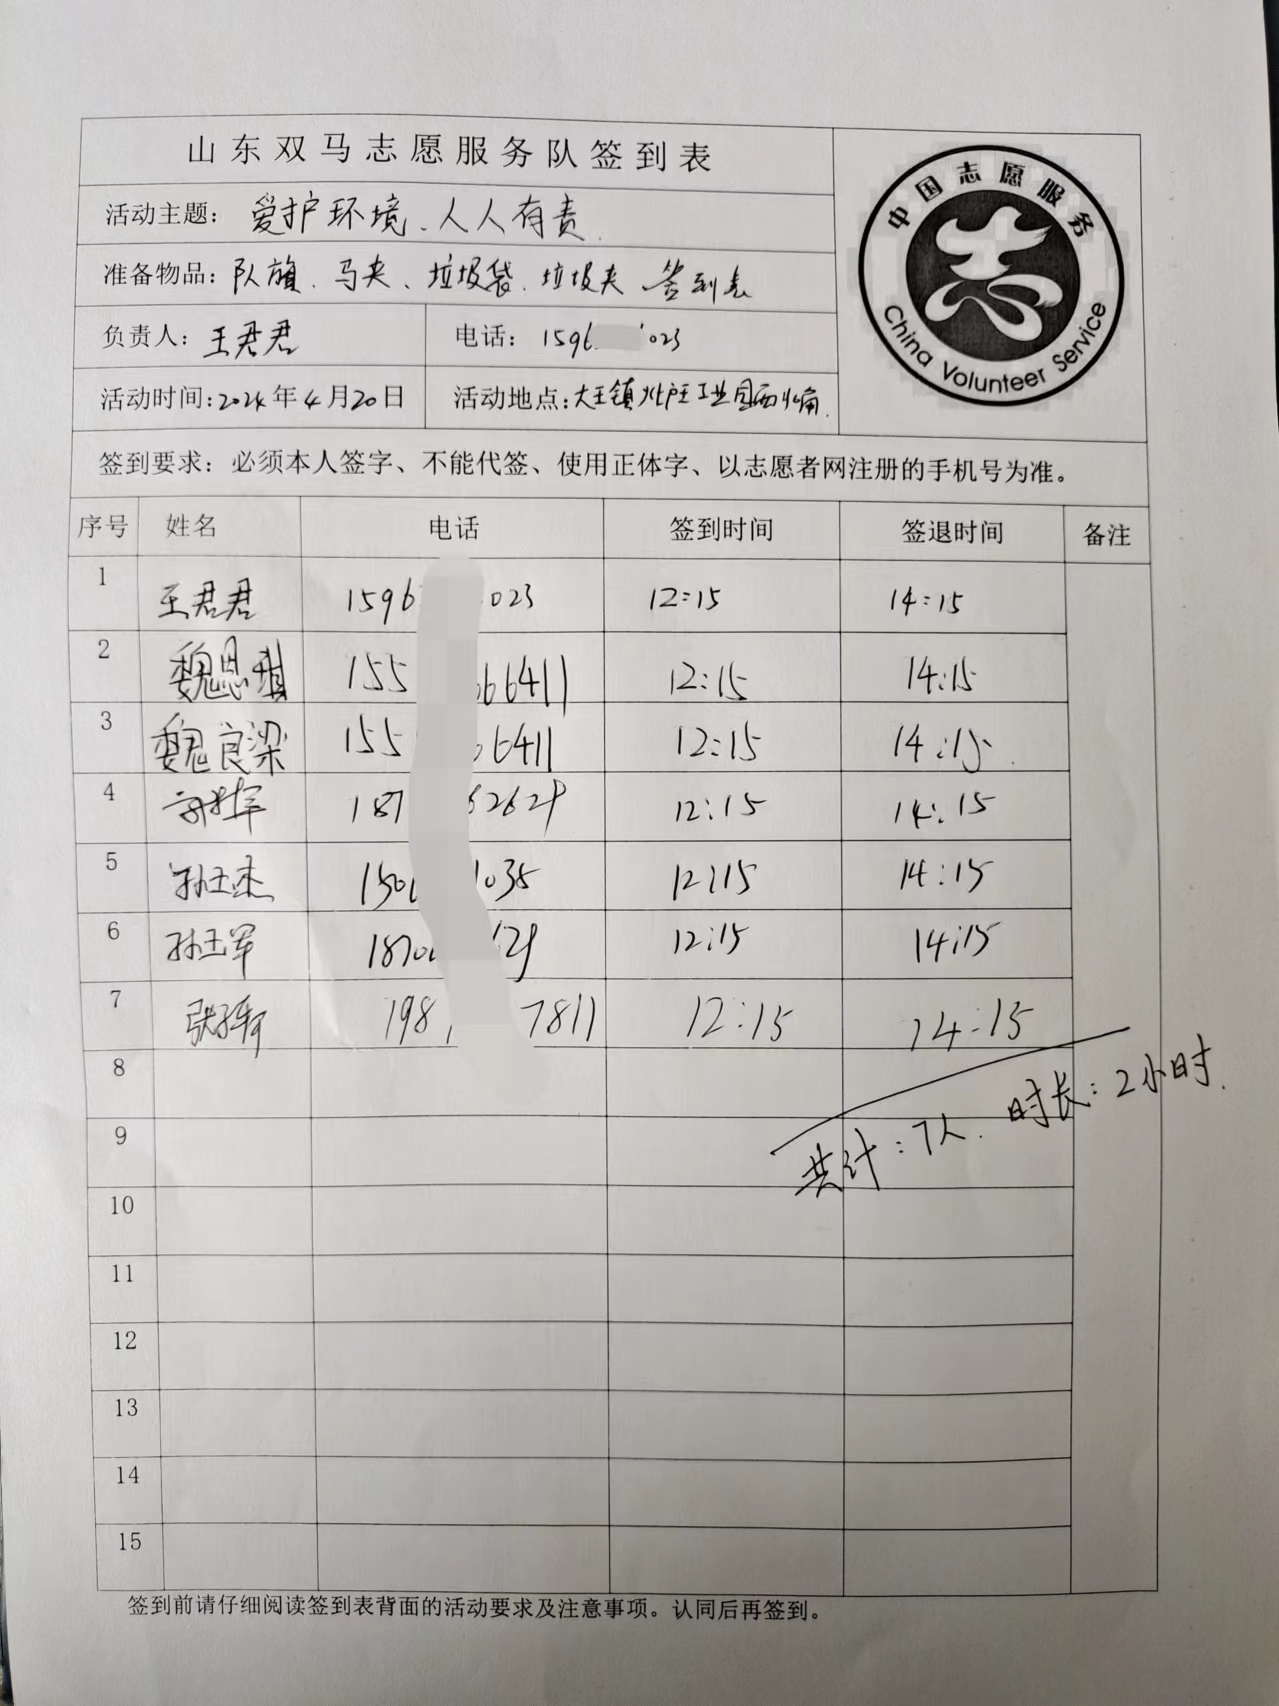 山东双马志愿服务队签到表
中国志愿服务
China Volunteer Service
活动主题：爱护环境、人人有责.
准备物品：队旗、马夹、垃圾袋、垃圾夹、签到表
负责人：王君君 电话：1596 023
活动时间：2024年4月20日 活动地点：大王镇 工业园西北角.
签到要求：必须本人签字、不能代签、使用正体字、以志愿者网注册的手机号为准。
序号 姓名 电话 签到时间 签退时间 备注
1 王君君 1596 023 12:15 14:15
2 魏恩琪 155 66411 12:15 14:15
3 魏良梁 155 6411 12:15 14:15
4 187 2629 12:15 14:15
5 孙玉杰 150 1035 12:15 14:15
6 孙玉军 1870 629 12:15 14:15
7 198 7811 12:15 14:15
8
共计：7人. 时长：2小时.
9
10
11
12
13
14
15
签到前请仔细阅读签到表背面的活动要求及注意事项。认同后再签到。